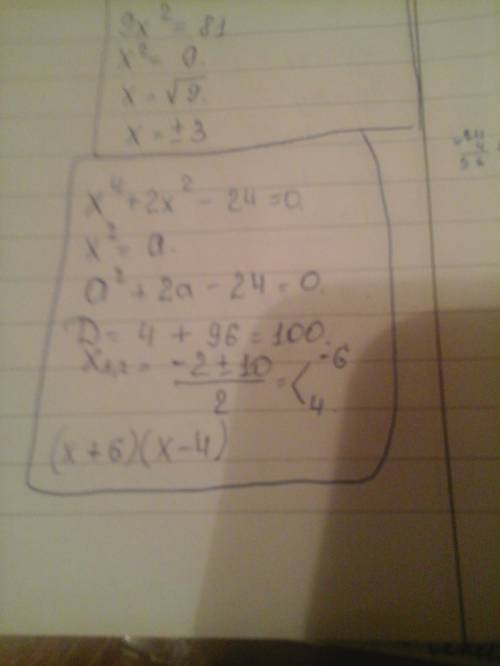 9x² = 81
x² = 9
x = √9.
x = ±3
x⁴ + 2x² - 24 = 0.
x² = a.
a² + 2a - 24 = 0.
D = 4 + 96 = 100.
x₁,₂ = (-2 ± 10)/2 = < -6 4
(x + 6)(x - 4)